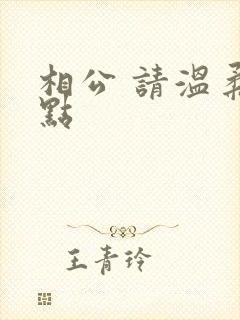 相公 請溫柔
點
王青玲